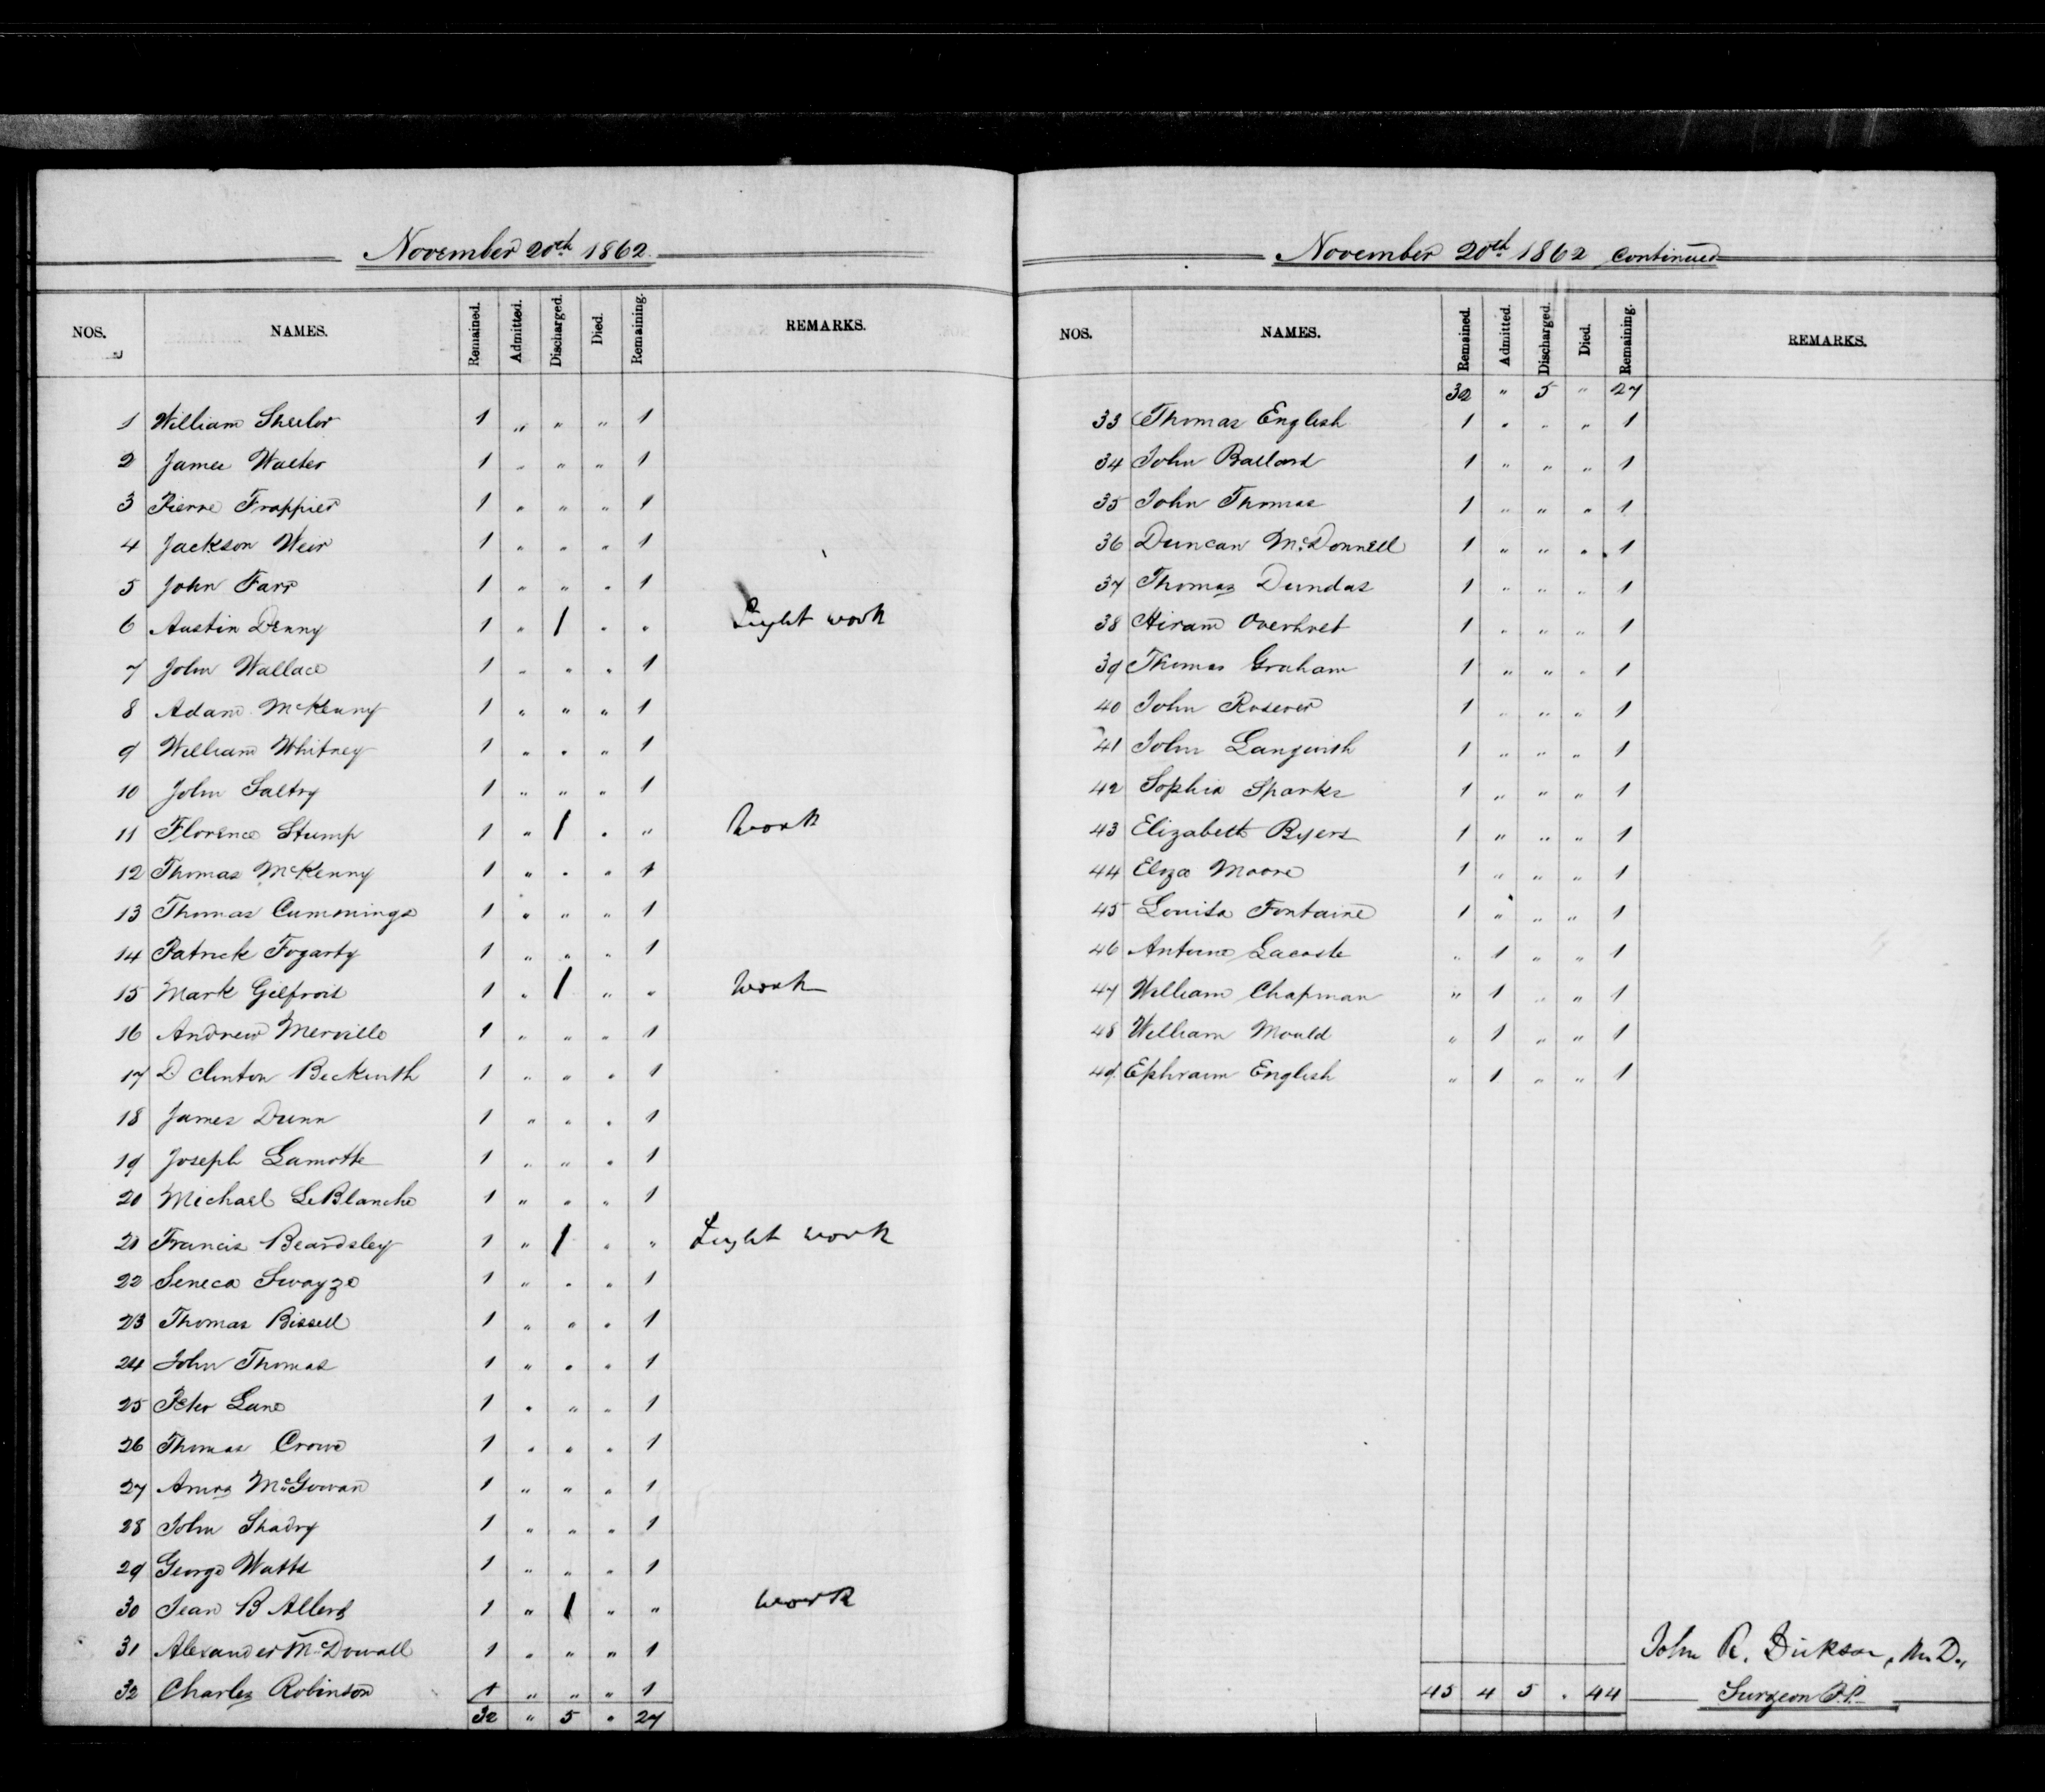 November 20th 1862.
NOS. NAMES. Remained. Admitted. Discharged. Died. Remaining. REMARKS.
1 William Sheelor 1 " " " 1
2 James Walter 1 " " " 1
3 Pierre Frappier 1 " " " 1
4 Jackson Weir 1 " " " 1
5 John Farr 1 " " " 1
6 Austin Denny 1 " 1 " " Light work
7 John Wallace 1 " " " 1
8 Adam McKenny 1 " " " 1
9 William Whitney 1 " " " 1
10 John Saltry 1 " " " 1
11 Florence Stump 1 " 1 " " Work
12 Thomas McKenny 1 " " " 1
13 Thomas Cummings 1 " " " 1
14 Patrick Fogarty 1 " " " 1
15 Mark Gilfroid 1 " 1 " " Work
16 Andrew Merville 1 " " " 1
17 D Clinton Beckwith 1 " " " 1
18 James Dunn 1 " " " 1
19 Joseph Lamotte 1 " " " 1
20 Michael LeBlanche 1 " " " 1
21 Francis Beardsley 1 " 1 " " Light work
22 Seneca Swayze 1 " " " 1
23 Thomas Bissell 1 " " " 1
24 John Thomas 1 " " " 1
25 Peter Lane 1 " " " 1
26 Thomas Crowe 1 " " " 1
27 McGowan 1 " " " 1
28 John Shadry 1 " " " 1
29 George Watts 1 " " " 1
30 Jean B Allard 1 " 1 " " work
31 Alexander McDowall 1 " " " 1
32 Charles Robinson 1 " " " 1
32 " 5 " 27
November 20th 1862 Continued
NOS. NAMES. Remained. Admitted. Discharged. Died. Remaining. REMARKS.
32 " 5 " 27
33 Thomas English 1 " " " 1
34 John Ballard 1 " " " 1
35 John Thomas 1 " " " 1
36 Duncan McDonnell 1 " " " 1
37 Thomas Dundas 1 " " " 1
38 Hiram Overholt 1 " " " 1
39 Thomas Graham 1 " " " 1
40 John Rosever 1 " " " 1
41 John Langwith 1 " " " 1
42 Sophia Sparks 1 " " " 1
43 Elizabeth Byers 1 " " " 1
44 Eliza Moore 1 " " " 1
45 Louisa Fontaine 1 " " " 1
46 Antoine Lacoste " 1 " " 1
47 William Chapman " 1 " " 1
48 William Mould " 1 " " 1
49 Ephraim English " 1 " " 1
John R. Dickson, M.D.,
45 4 5 " 44 Surgeon P.P.